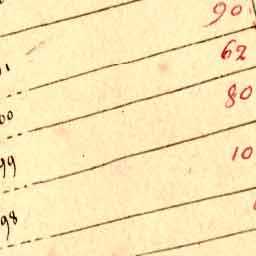 90
62
80
99 10
98